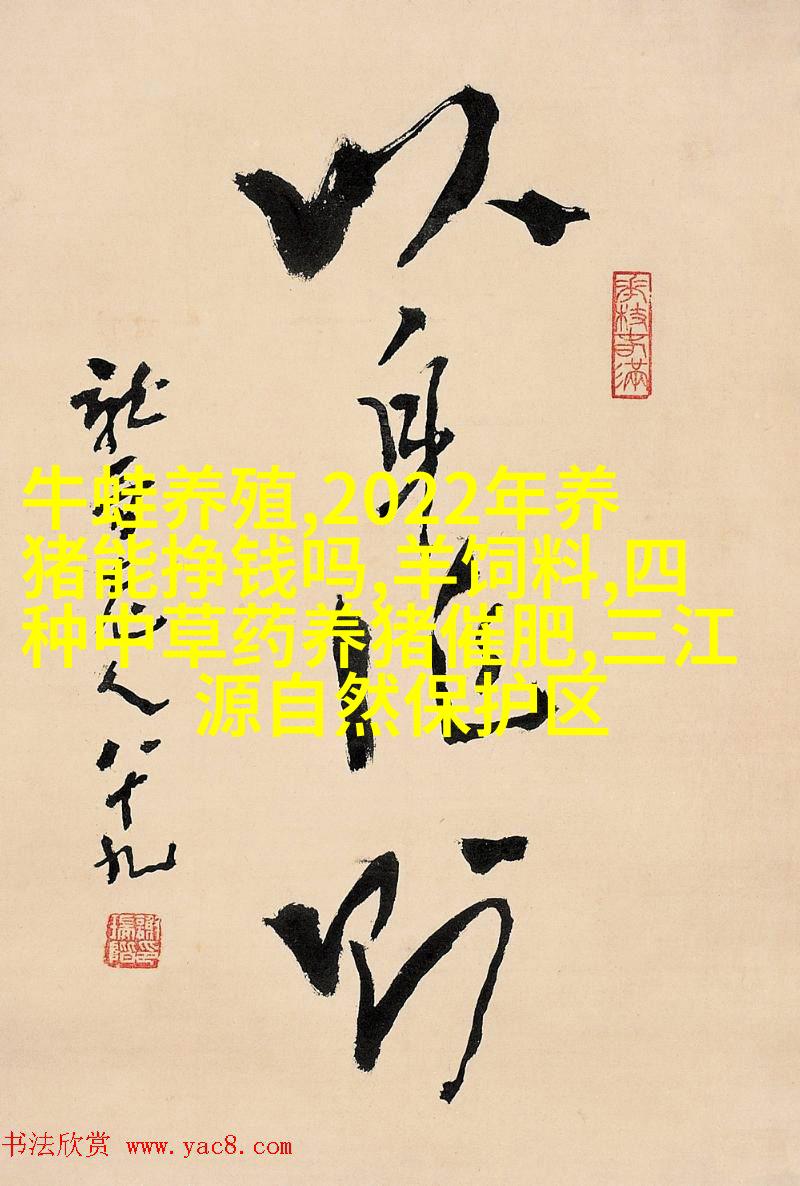 以
身
人八十九
牛蛙养殖,2022年养
猪能挣钱吗,羊饲料,四
种中草药养猪催肥,三江
源自然保护区
书法欣赏 www.yac8.com